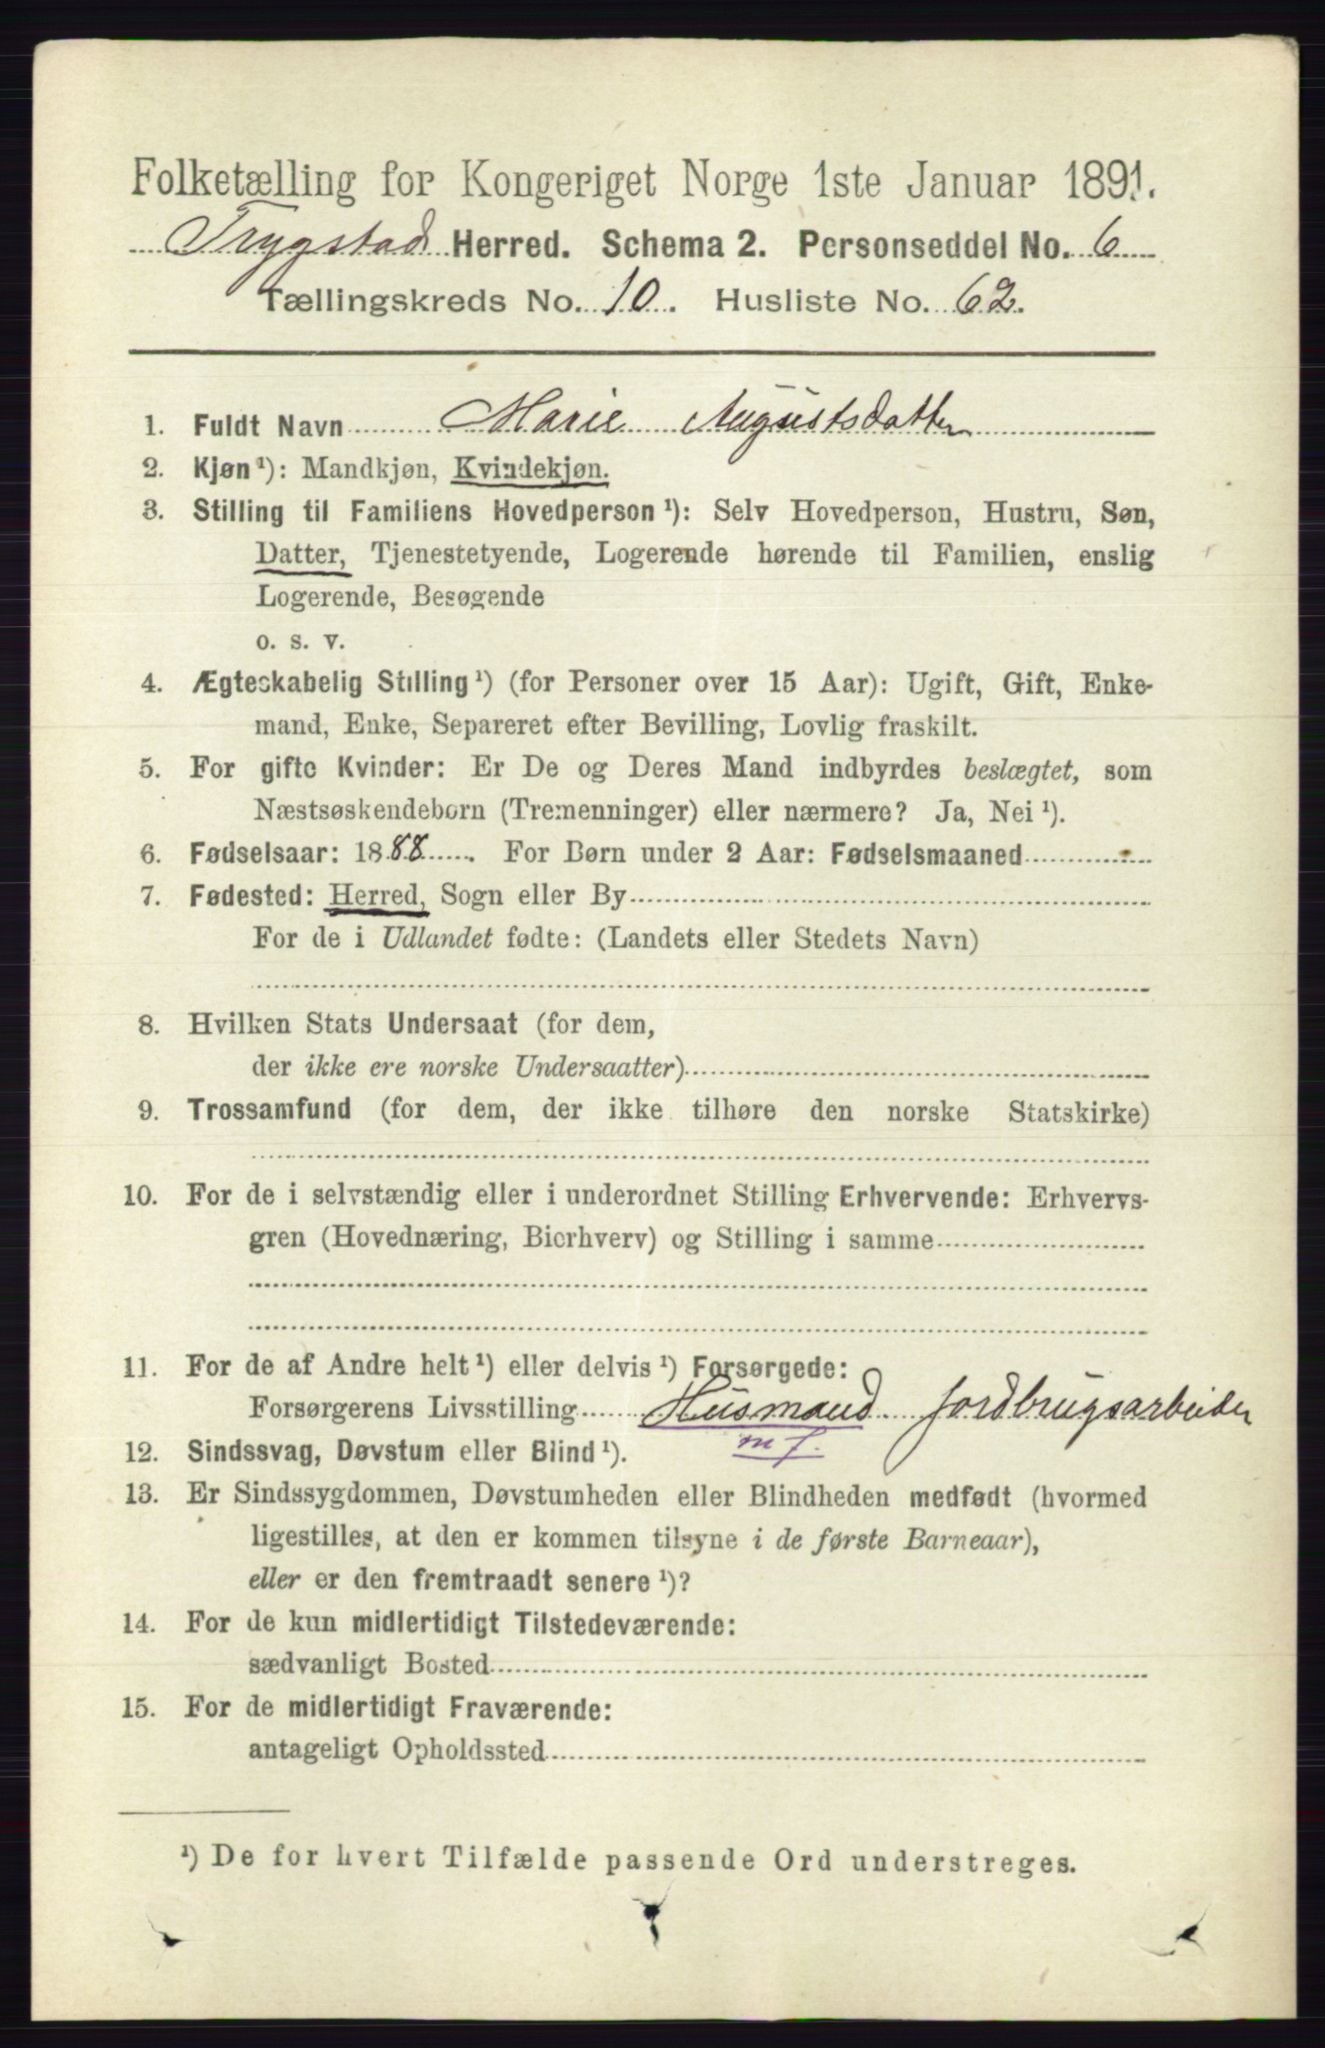 Folketælling for Kongeriget Norge 1ste Januar 1891.
Trygstad Herred. Schema 2. Personseddel No. 6
Tællingskreds No. 10. Husliste No. 62.
1. Fuldt Navn Marie Augustsdatter
2. Kjøn¹): Mandkjøn, Kvindekjøn.
3. Stilling til Familiens Hovedperson¹): Selv Hovedperson, Hustru, Søn,
Datter, Tjenestetyende, Logerende hørende til Familien, enslig
Logerende, Besøgende
o. s. v.
4. Ægteskabelig Stilling¹) (for Personer over 15 Aar): Ugift, Gift, Enke-
mand, Enke, Separeret efter Bevilling, Lovlig fraskilt.
5. For gifte Kvinder: Er De og Deres Mand indbyrdes beslægtet, som
Næstsøskendebørn (Tremenninger) eller nærmere? Ja, Nei¹).
6. Fødselsaar: 1888. For Børn under 2 Aar: Fødselsmaaned
7. Fødested: Herred, Sogn eller By
For de i Udlandet fødte: (Landets eller Stedets Navn)
8. Hvilken Stats Undersaat (for dem,
der ikke ere norske Undersaatter)
9. Trossamfund (for dem, der ikke tilhøre den norske Statskirke)
10. For de i selvstændig eller i underordnet Stilling Erhvervende: Erhvervs-
gren (Hovednæring, Bierhverv) og Stilling i samme
11. For de af Andre helt¹) eller delvis¹) Forsørgede:
Forsørgerens Livsstilling Husmand jordbrugsarbeider
m f.
12. Sindssvag, Døvstum eller Blind¹).
13. Er Sindssygdommen, Døvstumheden eller Blindheden medfødt (hvormed
ligestilles, at den er kommen tilsyne i de første Barneaar),
eller er den fremtraadt senere¹)?
14. For de kun midlertidigt Tilstedeværende:
sædvanligt Bosted
15. For de midlertidigt Fraværende:
antageligt Opholdssted
¹) De for hvert Tilfælde passende Ord understreges.